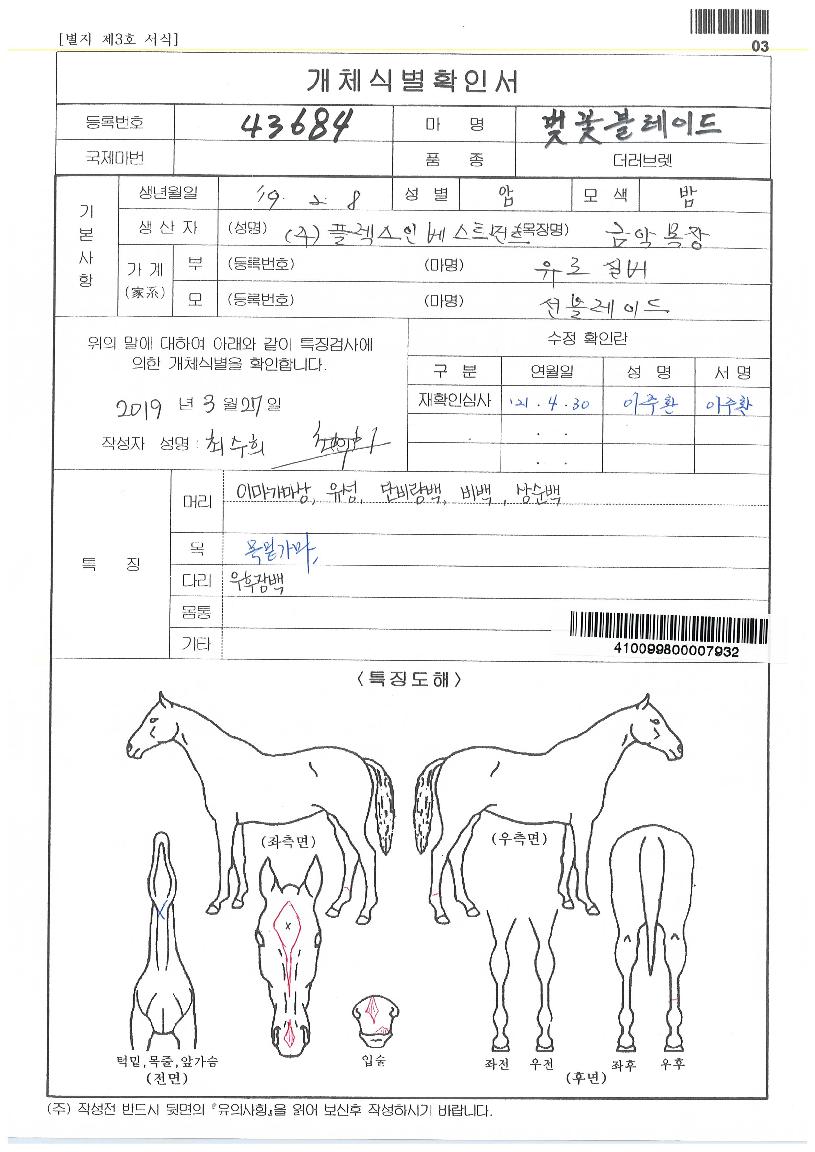 [별지 제3호 서식]
03
개체식별확인서
등록번호 43684 마 명 벚꽃블레이드
국제마번 품 종 더러브렛
기본사항
생년월일 '19. 2. 8 성 별 암 모 색 밤
생 산 자 (성명) (주)플렉스인베스트먼트 (목장명) 금악목장
가 계 (家系) 부 (등록번호) (마명) 유로실버
모 (등록번호) (마명) 선블레이드
위의 말에 대하여 아래와 같이 특징검사에
의한 개체식별을 확인합니다.
2019 년 3 월 27 일
작성자 성명 : 최수희
수정 확인란
구 분 연월일 성 명 서 명
재확인심사 '21. 4. 30 이주환 이주환
. .
. .
특 징
머리 이마가마상, 유성, 단비량백, 비백, 상순백
목 목밑가마,
다리 우후장백
몸통
기타
410099800007932
<특징도해>
(좌측면) (우측면)
턱밑,목줄,앞가슴
(전면)
입술
좌전 우전 좌후 우후
(후면)
(주) 작성전 반드시 뒷면의 『유의사항』을 읽어 보신후 작성하시기 바랍니다.